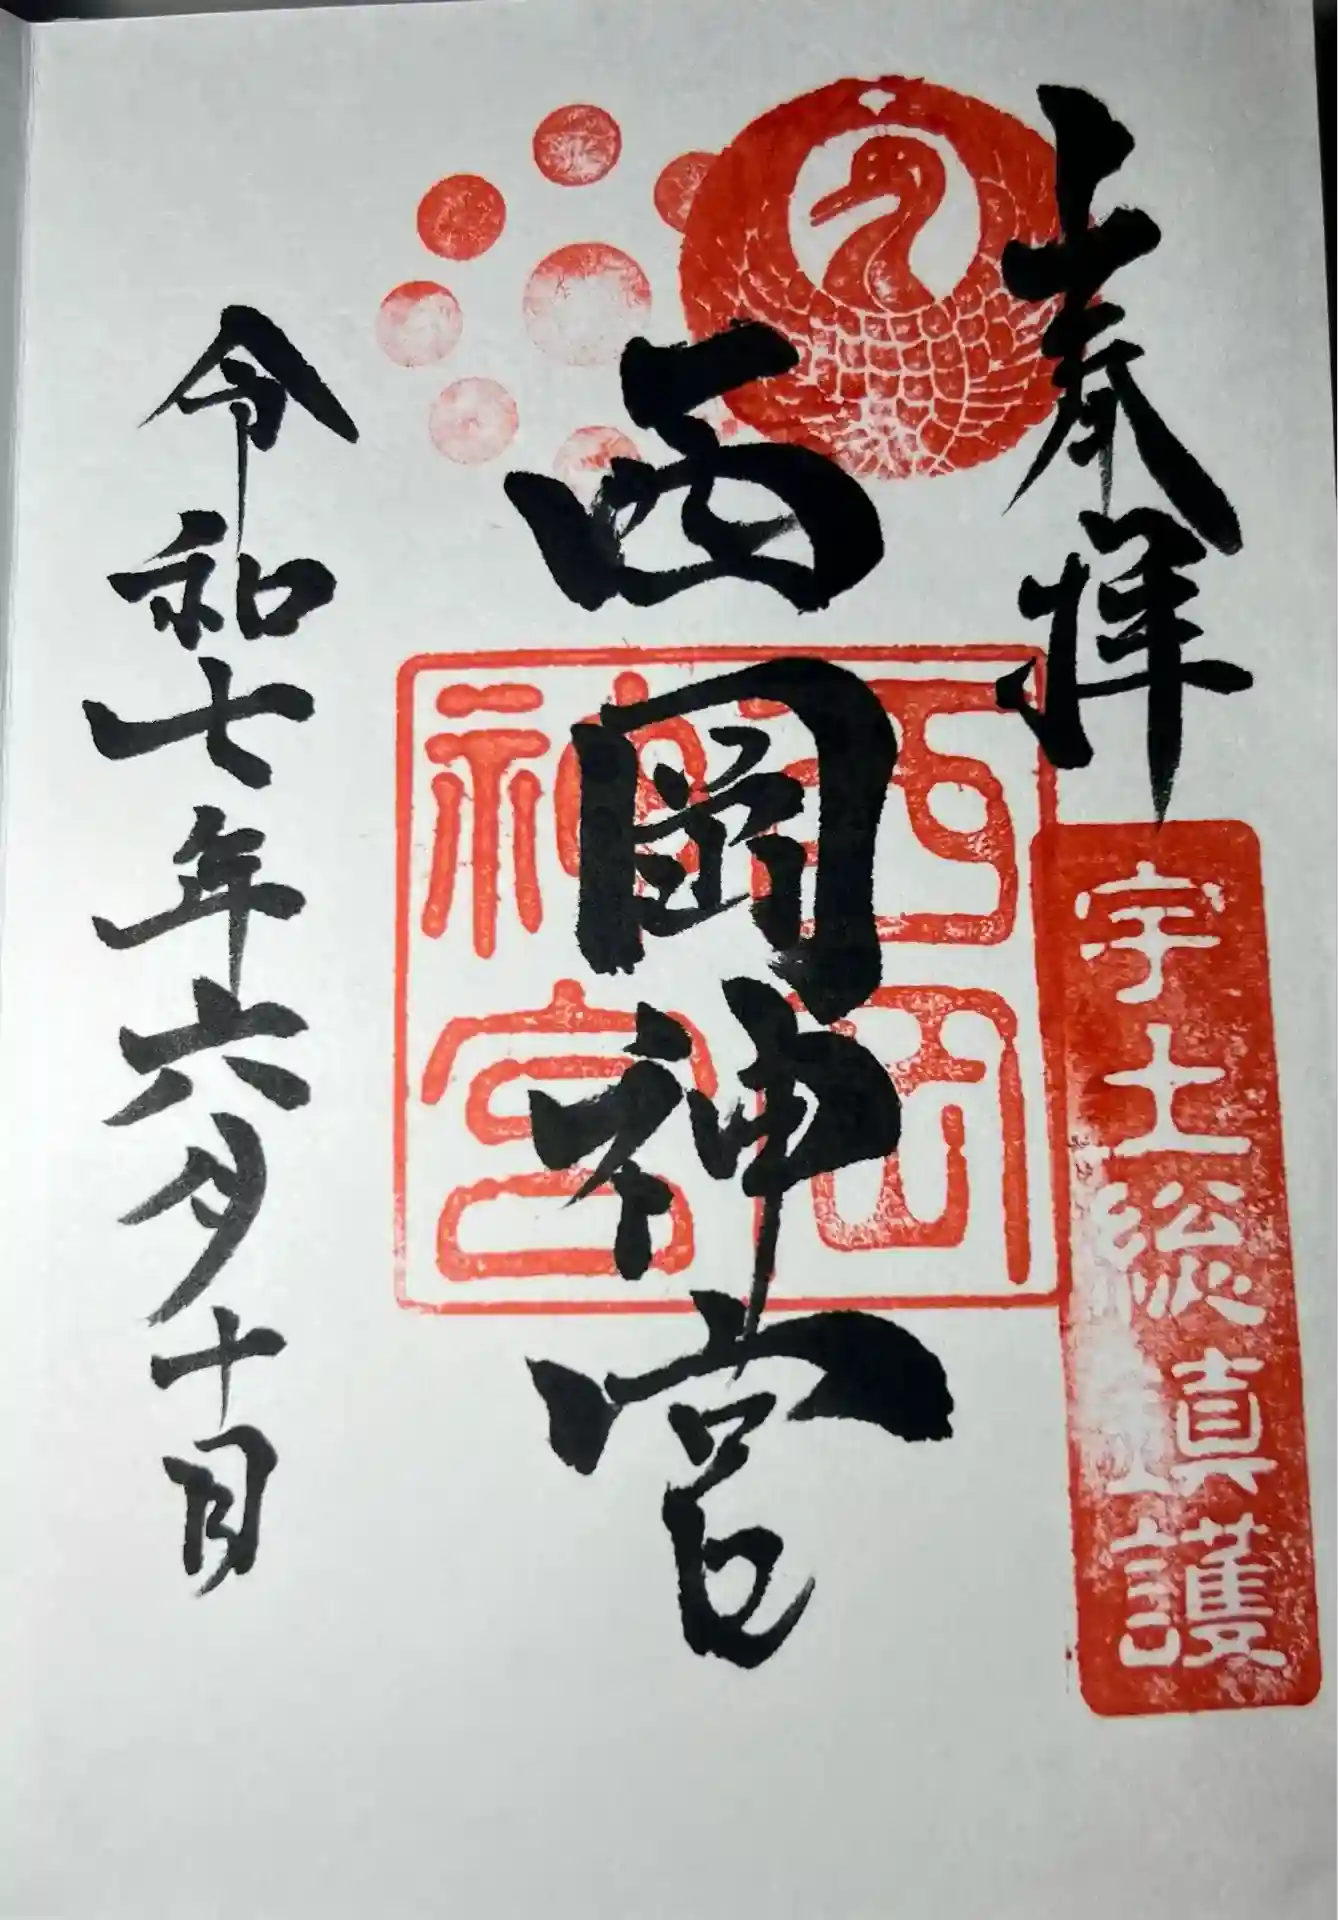 奉拝
宇土総鎮護
西岡神宮
西岡神宮
令和七年六月十日